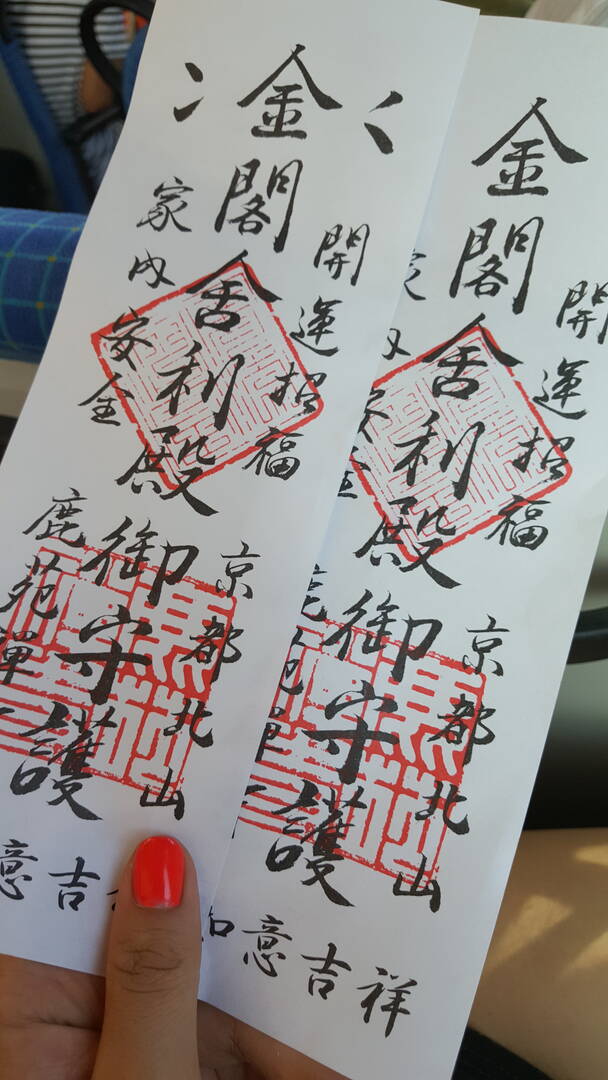 開運招福
京都北山
金閣舍利殿御守護
家内安全
鹿苑
意吉
開運招福
京都北山
金閣舍利殿御守護
意吉祥